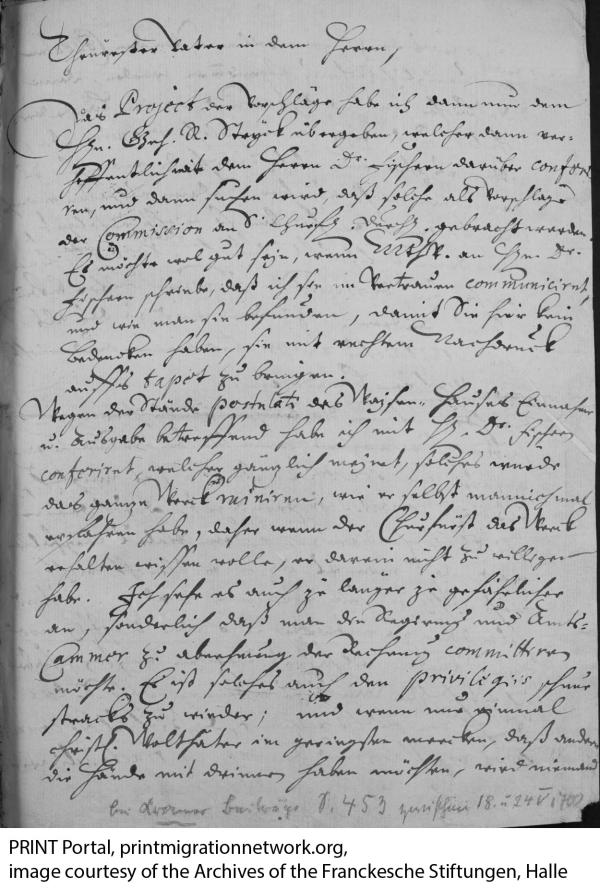 Theürester Vater in dem Herrn,
Das Project der Vorschläge habe ich dann nun dem
Hn. Geh. R. Stryck übergeben, welcher dann ver-
hoffentlich mit dem Herrn Dr. Fischern darüber conferi
ren, und dann suchen wird, daß solche als Vorschläge
der Commission an S. Churfl. Durchl. gebracht werden.
Es möchte wol gut seyn, wenn an Hn. Dr.
Fischern schriebe, daß ich sie im Vertrauen communiciret,
und wie man sie befunden, damit Sie hier kein
Bedencken haben, sie mit rechtem Nachdruck
auffs tapet zu bringen.
Wegen der Stände postulati des Waysen-Hauses Einnahme
u. Ausgabe betreffend habe ich mit H. Dr. Fischern
conferiret, welcher gänzlich meinet, solches würde
das ganze Werck ruiniren, wie er selbst mannichmal
erfahren habe, daher wenn der Churfürst das Werck
erhalten wissen wolle, er darein nicht zu willigen
habe. Ich sehe es auch je länger je gefährlicher
an, sonderlich daß man die Regierung und Amts-
Cammer zu abnehmung der Rechnung committiren
möchte. Es ist solches auch den privilegiis schnur
stracks zu wieder; und wenn nur einmal
christl. Wolthäter im geringsten mercken, daß andere
die Hände mit drinnen haben möchten, wird niemand
bei Kramer Beiträge S. 453 zwischen 18. u 24 V 1700
PRINT Portal, printmigrationnetwork.org,
image courtesy of the Archives of the Franckesche Stiftungen, Halle